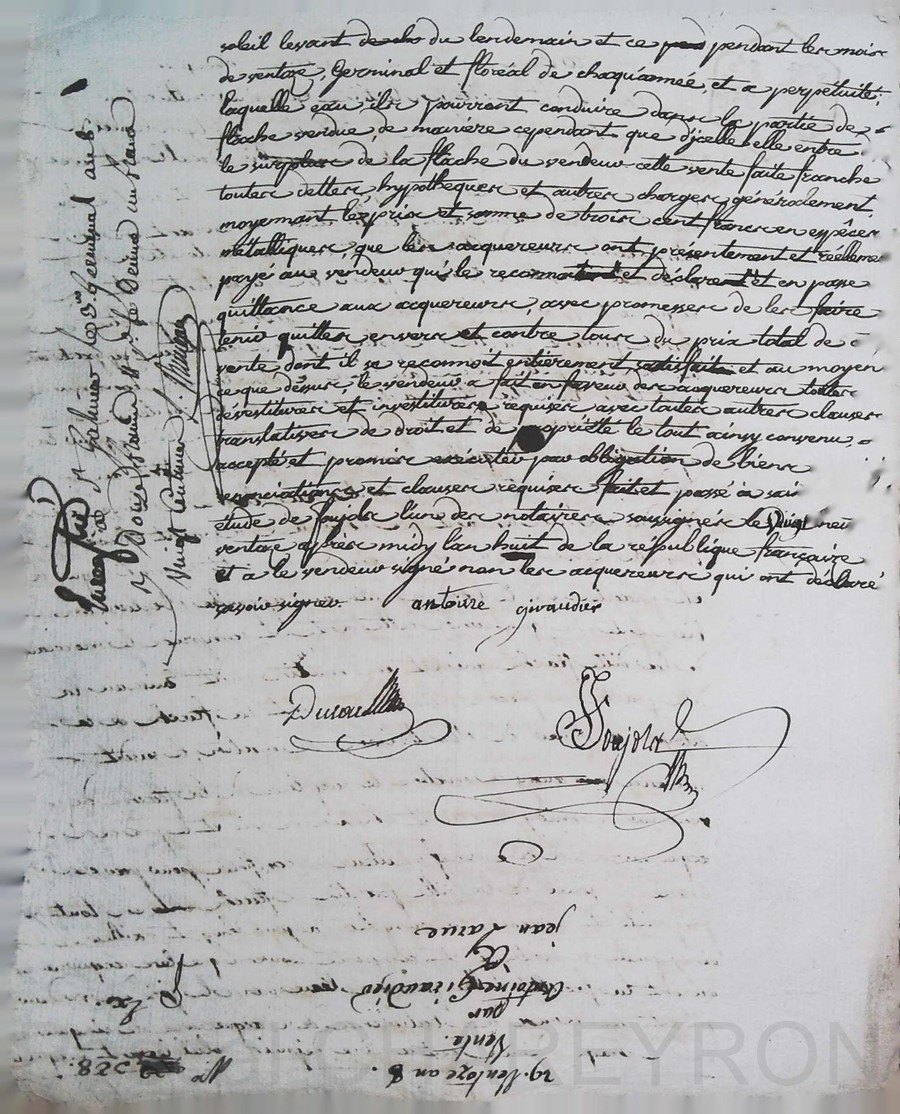 soleil levant du lendemain et ce pendant les mois
de ventose, Germinal et floréal de chaqu'année, et a perpétuité,
laquelle eau ils pourront conduire dans la partie de
flache vendue, de manière cependant que d'jcelle elle entre
le surplus de la flache du vendeur cette vente faite franche
toutes dettes, hypotheques et autres charges généralement,
moyennant le prix et somme de trois cent francs en espèces
métalliques, que les acquereurs ont présentement et réellement
payé au vendeur qui le reconnoit et déclare et en passe
quittance aux acquereurs, avec promesses de les faire
tenir quittes envers et contre tous du prix total de
vente dont il se reconnoit entièrement satisfait et au moyen
ce que dessus, le vendeur a fait en faveur des acquereurs toutes
devestitures et investitures requises avec toutes autres clauses
translatives de droit et de propriété le tout ainsy convenu,
accepté et promis exécuter par obligation de biens
renonciations et clauses requises fait et passé à
étude de Soujols l'un des notaires soussignés le Vingt neuf
ventose après midy l'an huit de la république française
et a le vendeur signé non les acquereurs qui ont déclaré
savoir signer. antoine giraudier
Ducou
Soujols
Nre
a St Galmier le 3 Germinal an 8
Douze francs
Vingt Centimes
29. Ventoze an 8.
Vente
par
Antoine Giraudier
a
jean Larue
No 258
Ex.
GI CHAREYRON